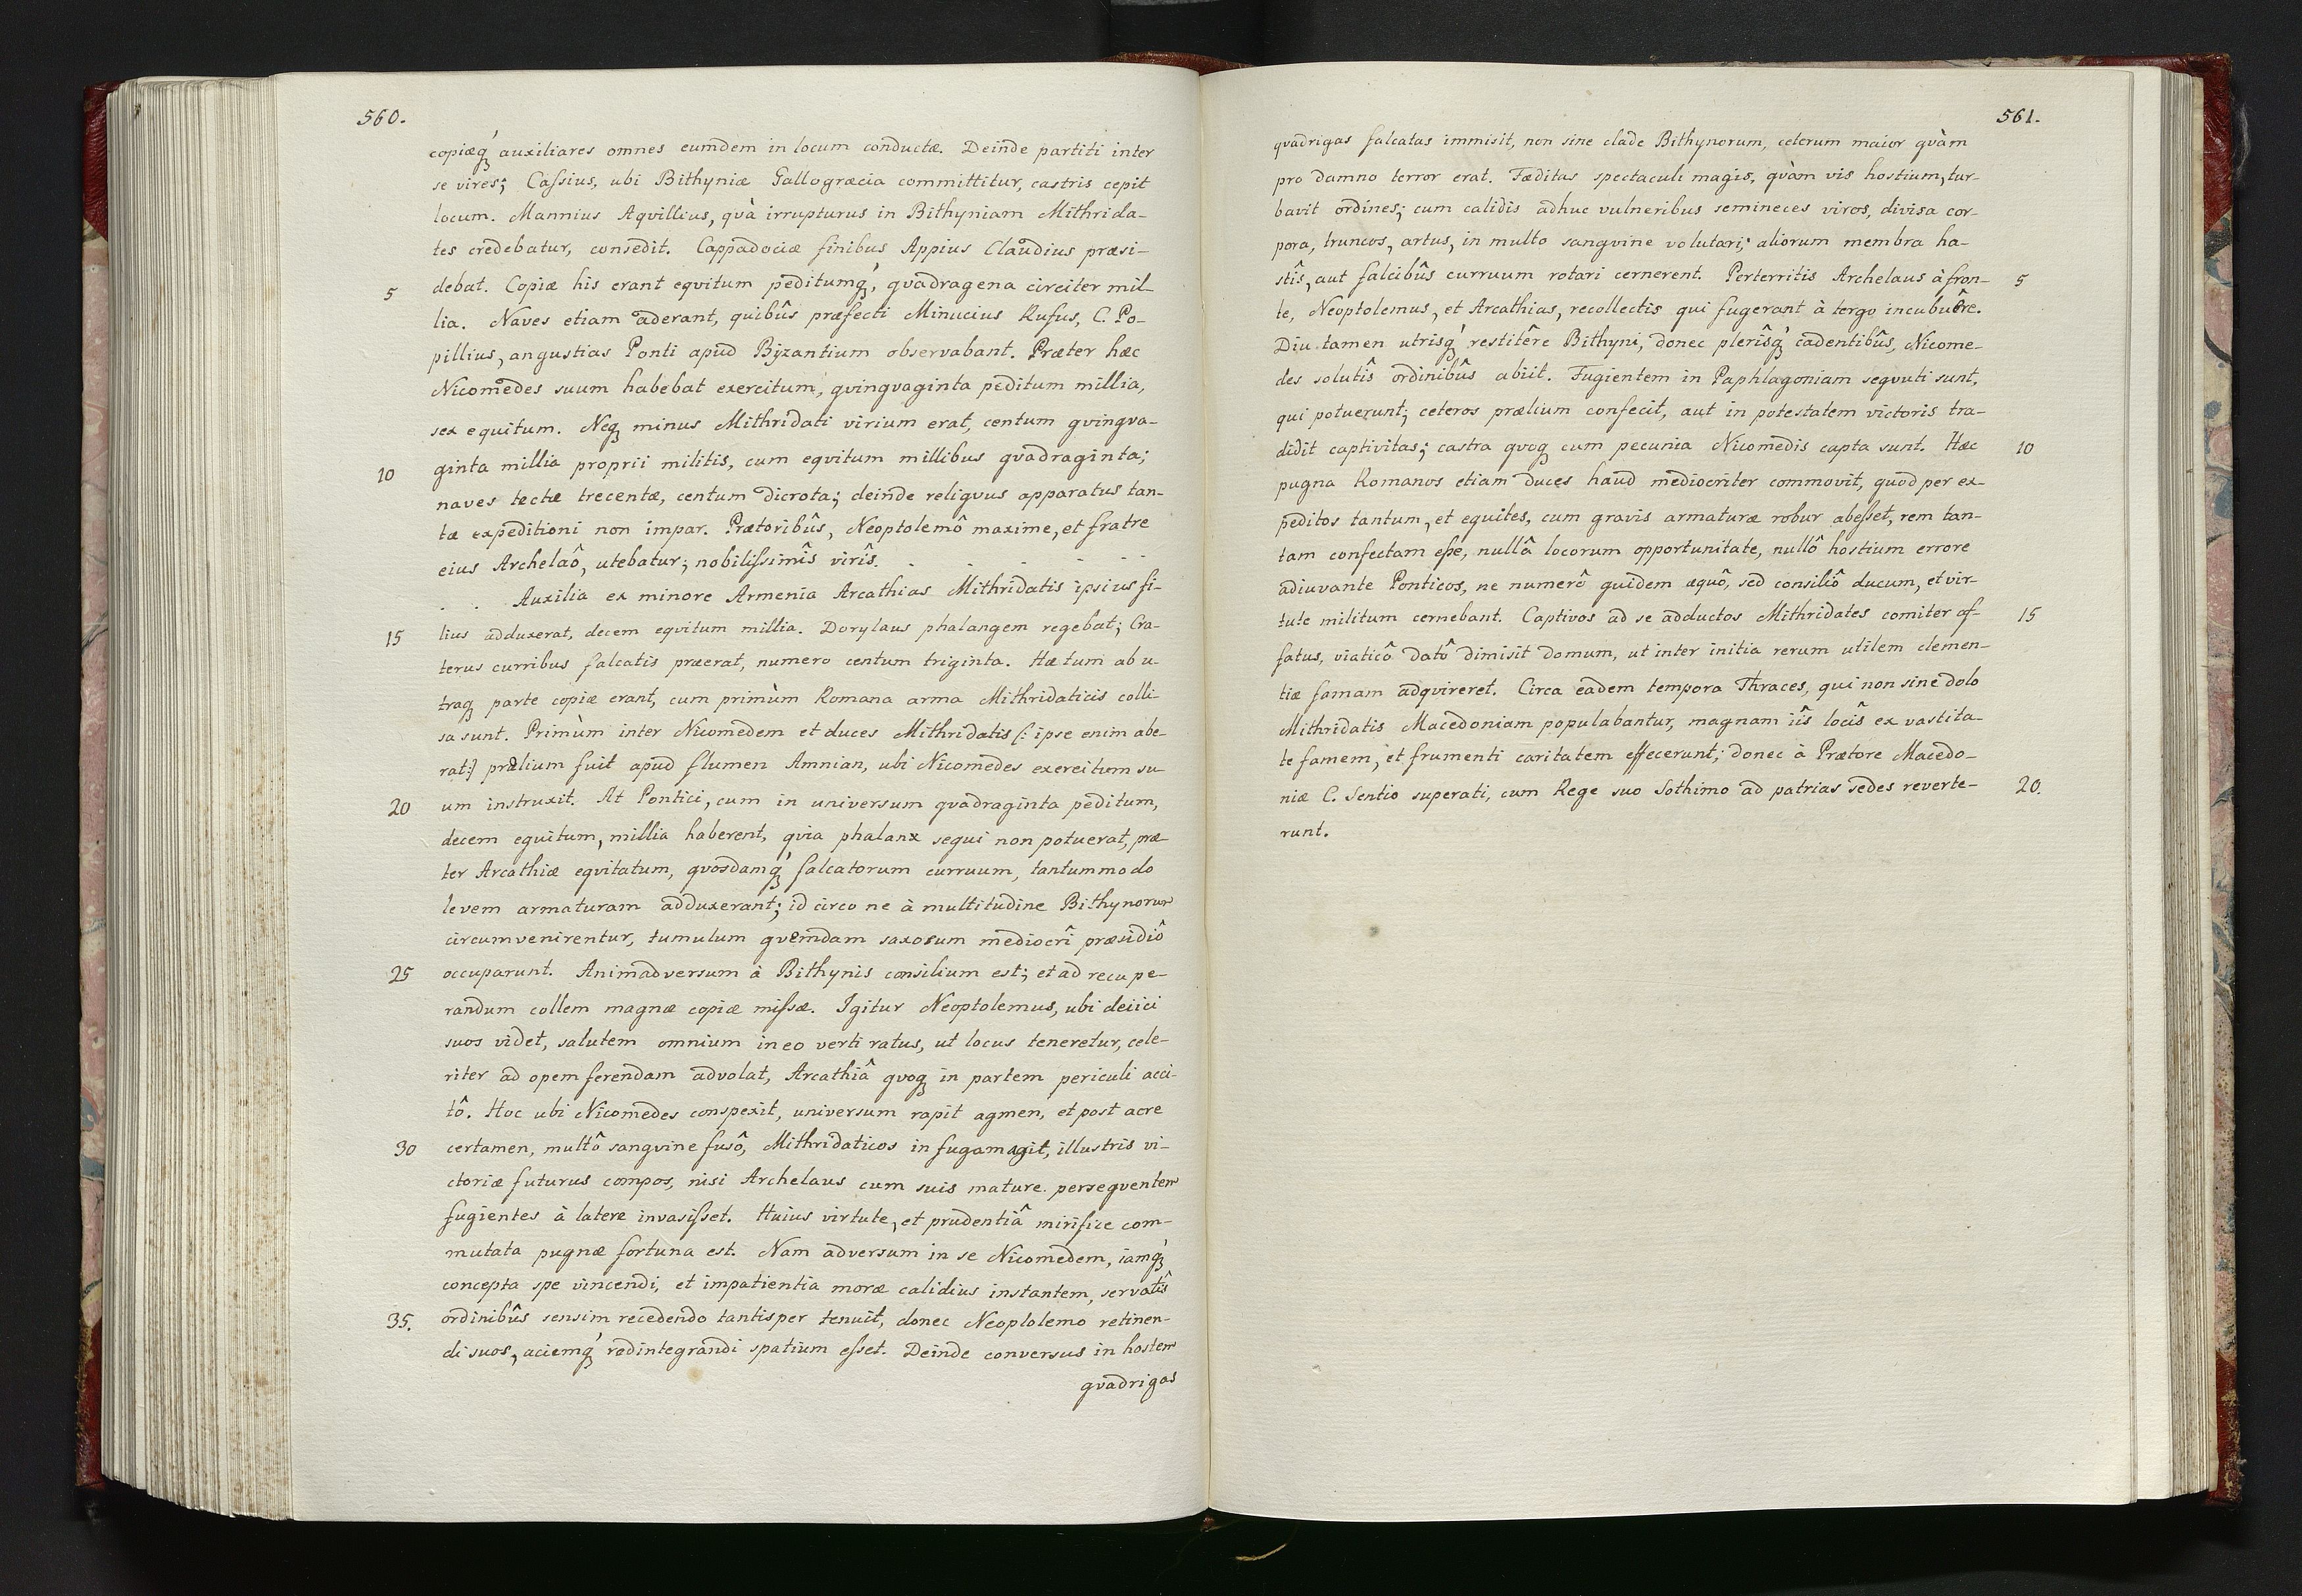 560.
copiæq́ꝫ auxiliares omnes eumdem in locum conductæ. Deinde partiti inter
se vires; Caſsius, ubi Bithyniæ Gallogræcia committitur, castris cepit
locum. Mannius Aqvillius, qvà irrupturus in Bithyniam Mithrida-
tes credebatur, consedit. Cappadociæ finibus Appius Claudius præsi-
5 debat. Copiæ his erant eqvitum peditumq́ꝫ, qvadragena circiter mil-
lia. Naves etiam aderant, quibûs præfecti Minucius Rufus, C. Po-
pillius, angustias Ponti apud Byzantium observabant. Præter hæc
Nicomedes suum habebat exercitum, qvinqvaginta peditum millia,
sex equitum. Neqꝫ minus Mithridati virium erat, centum qvinqva-
10 ginta millia proprii militis, cum eqvitum millibus qvadraginta;
naves tectæ trecentæ, centum dicrota; deinde reliqvus apparatus tan-
tæ expeditioni non impar. Prætoribûs, Neoptolemô maxime, et fratre
eius Archelaô, utebatur; nobiliſsimîs virîs. . . . . .
. . Auxilia ex minore Armenia Arcathias Mithridatis ipsius fi-
15 lius adduxerat, decem eqvitum millia. Dorylaus phalangem regebat; Cra-
terus curribus falcatis præerat, numero centum triginta. Hæ tum ab u-
traqꝫ parte copiæ erant, cum primùm Romana arma Mithridaticis colli-
sa sunt. Primùm inter Nicomedem et duces Mithridatis (: ipse enim abe-
rat:) prælium fuit apud flumen Amnian, ubi Nicomedes exercitum su-
20 um instruxit. At Pontici, cum in universum qvadraginta peditum,
decem equitum, millia haberent, qvia phalanx sequi non potuerat, præ-
ter Arcathiæ eqvitatum, qvosdamq́ꝫ falcatorum curruum, tantummodo
levem armaturam adduxerant; id circo ne à multitudine Bithynorum
circumvenirentur, tumulum qvemdam saxosum mediocrî præsidiô
25 occuparunt. Animadversum à Bithynis consilium est; et ad recupe-
randum collem magnæ copiæ miſsæ. Igitur Neoptolemus, ubi deiici
suos videt, salutem omnium in eo verti ratus, ut locus teneretur, cele-
riter ad opem ferendam advolat, Arcathiâ qvoqꝫ in partem periculi acci-
tô. Hoc ubi Nicomedes conspexit, universum rapit agmen, et post acre
30 certamen, multô sangvine fusô, Mithridaticos in fugam agit, illustris vi-
ctoriæ futurus compos, nisi Archelaus cum suis mature perseqventem
fugientes à latere invasiſset. Huius virtute, et prudentiâ mirifice com-
mutata pugnæ fortuna est. Nam adversum in se Nicomedem, iamq́ꝫ
concepta spe vincendi, et impatientia moræ calidius instantem, servatîs
35. ordinibûs sensim recedendo tantisper tenuit, donec Neoptolemo retinen-
di suos, aciemq́ꝫ redintegrandi spatium eſset. Deinde conversus in hostem
qvadrigas
561.
qvadrigas falcatas immisit, non sine clade Bithynorum, ceterum maior qvàm
pro damno terror erat. Fæditas spectaculi magis, qvàm vis hostium, tur-
bavit ordines; cum calidis adhuc vulneribus semineces viros, divisa cor-
pora, truncos, artus, in multo sangvine volutari; aliorum membra ha-
stîs, aut falcibûs curruum rotari cernerent. Perterritis Archelaus à fron- 5
te, Neoptolemus, et Arcathias, recollectis qui fugerant à tergo incubuêre.
Diu tamen utrisq́ꝫ restitêre Bithyni, donec plerîsq́ꝫ cadentibûs, Nicome-
des solutîs ordinibûs abiit. Fugientem in Paphlagoniam seqvuti sunt,
qui potuerunt; ceteros prælium confecit, aut in potestatem victoris tra-
didit captivitas; castra qvoqꝫ cum pecunia Nicomedis capta sunt. Hæc 10
pugna Romanos etiam duces haud mediocriter commovit, quod per ex-
peditos tantum, et equites, cum gravis armaturæ robur abeſset, rem tan-
tam confectam eſse, nullâ locorum opportunitate, nullô hostium errore
adiuvante Ponticos, ne numerô quidem æquô, sed consiliô ducum, et vir-
tute militum cernebant. Captivos ad se adductos Mithridates comiter af- 15
fatus, viaticô datô dimisit domum, ut inter initia rerum utilem clemen-
tiæ famam adqvireret. Circa eadem tempora Thraces, qui non sine dolo
Mithridatis Macedoniam populabantur, magnam iîs locîs ex vastita-
te famem, et frumenti caritatem effecerunt; donec à Prætore Macedo-
niæ C. Sentio superati, cum Rege suo Sothimo ad patrias sedes reverte- 20.
runt.